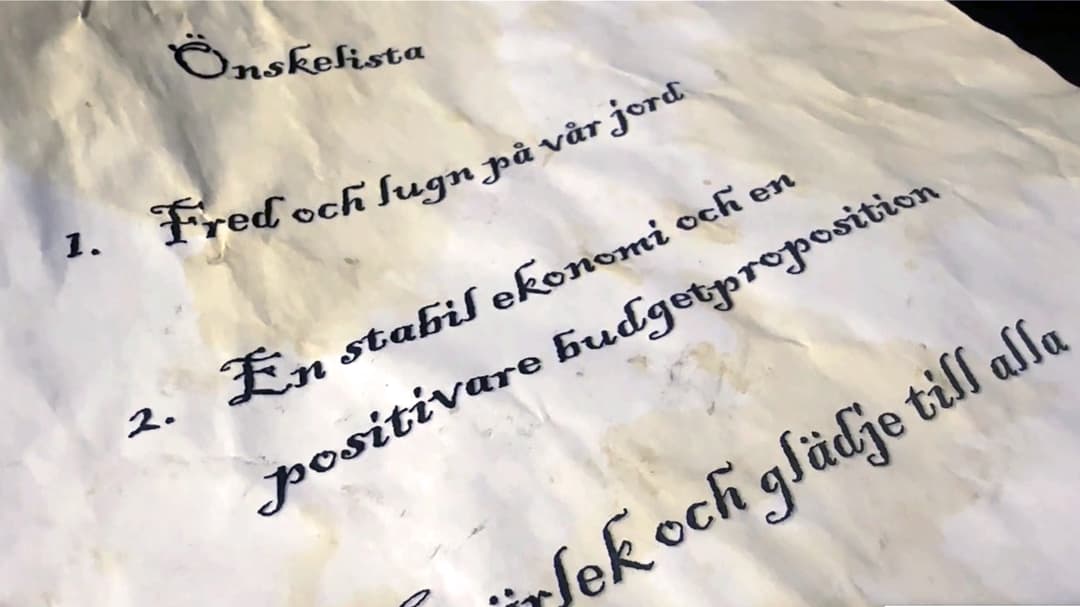 Önskelista
1. Fred och lugn på vår jord
2. En stabil ekonomi och en
positivare budgetproposition
och glädje till alla